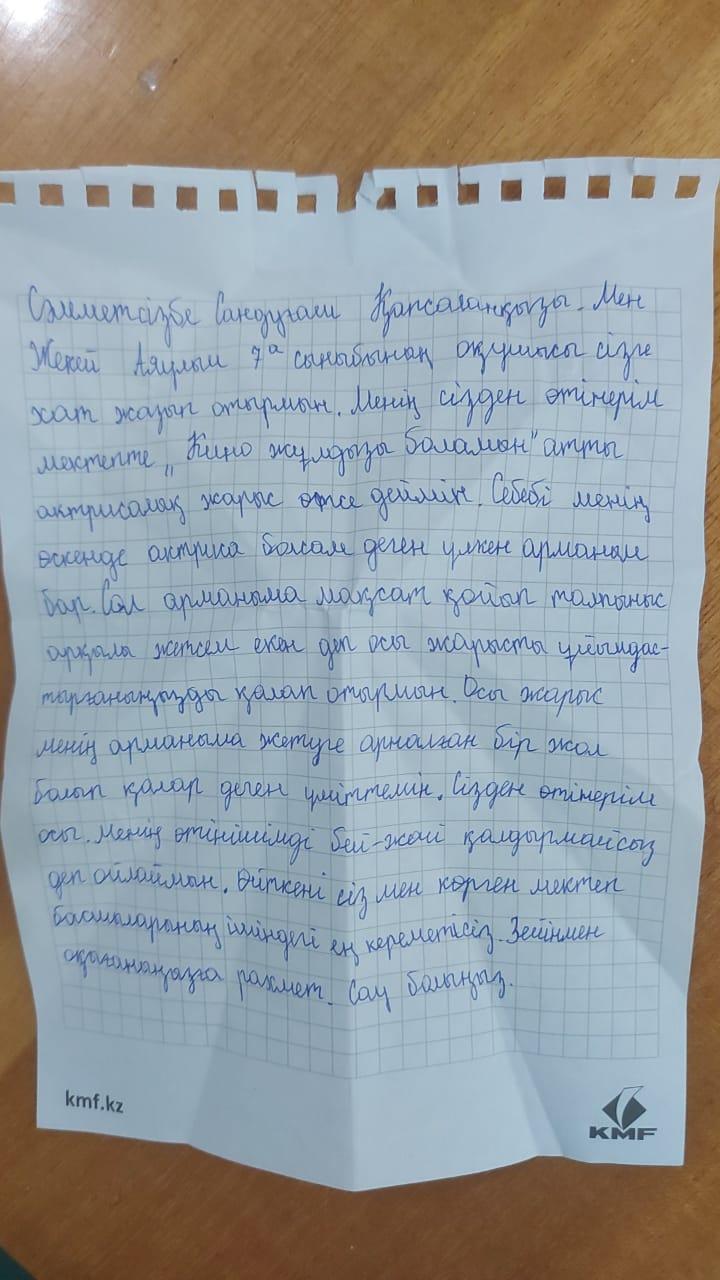 Сәлеметсізбе Сандуғаш Қапсаланқызы. Мен
Жекей Аяулым 7а сыныбының оқушысы сізге
хат жазып отырмын. Менің сізден өтінерім
мектепте „Кино жұлдызы боламын" атты
актрисалық жарыс өтсе деймін. Себебі менің
өскенде актриса болсам деген үлкен арманым
бар. Сол арманыма мақсат қойып талпыныс
арқылы жетсем екен деп осы жарысты ұйымдас-
тырғаныңызды қалап отырмын. Осы жарыс
менің арманыма жетуге арналған бір жол
болып қалар деген үміттемін. Сізден өтінерім
осы. Менің өтінішімді бей-жай қалдырмайсыз
деп ойлаймын. Өйткені сіз мен көрген мектеп
басшыларының ішіндегі ең кереметісіз. Зейінмен
оқығаныңызға рахмет. Сау болыңыз.
kmf.kz
KMF